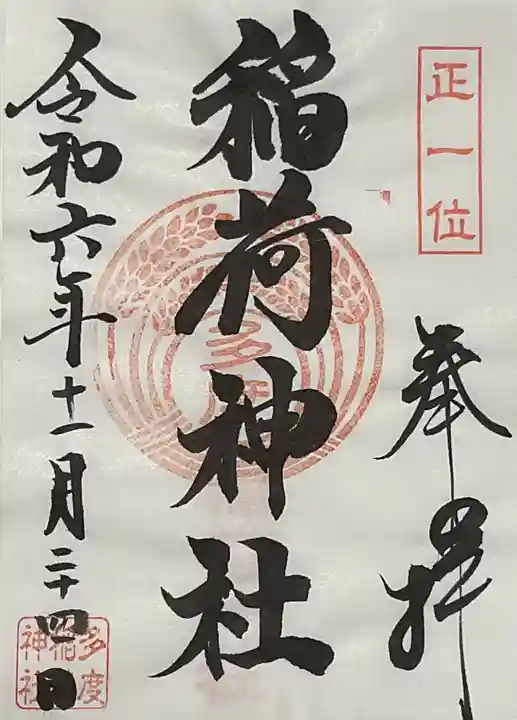 正一位
奉拝
稲荷神社
令和六年十一月二十四日
多度
稲荷
神社